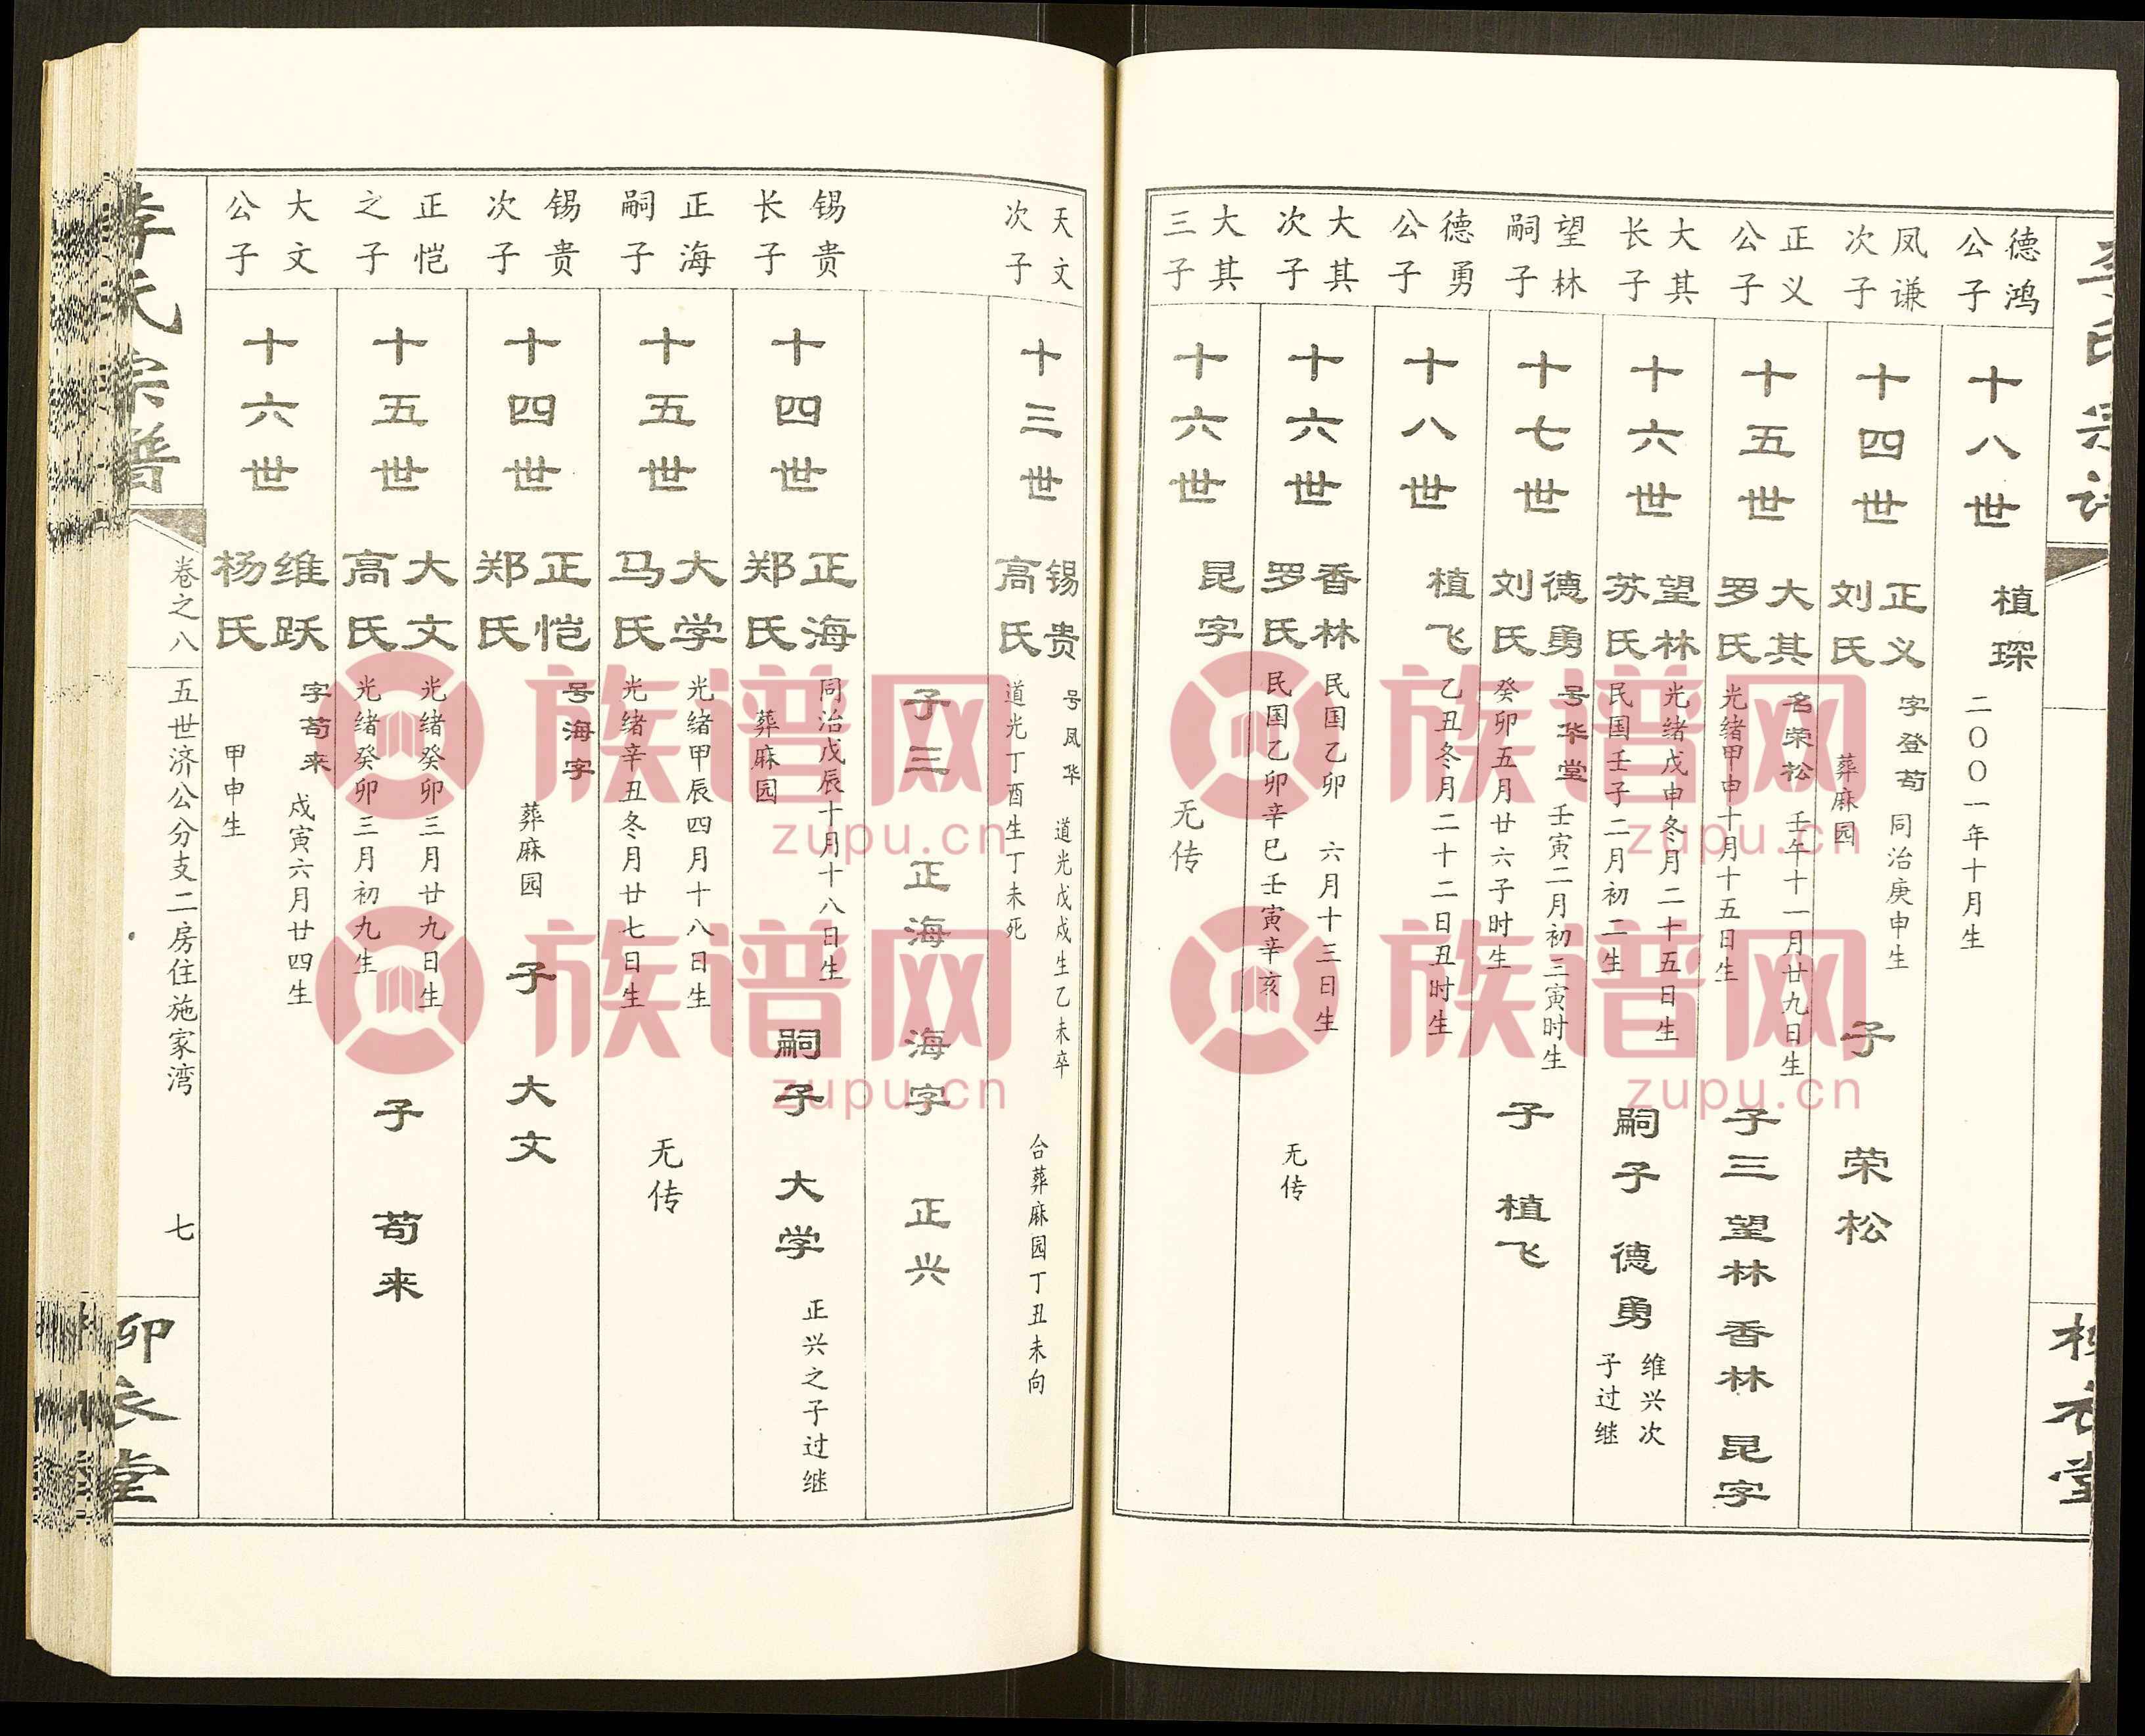 李氏宗谱
德鸿公子
十八世
植琛
二〇〇一年十月生
凤谦次子
十四世
正义
刘氏
字登荀
同治庚申生
葬麻园
子 荣松
正义公子
十五世
大其
罗氏
名荣松 壬午十一月廿九日生
光绪甲申十月十五日生
子三 望林 香林 昆字
大其长子
十六世
望林
苏氏
光绪戊申冬月二十五日生
民国壬子二月初二生
嗣子 德勇
维兴次子过继
望林嗣子
十七世
德勇
刘氏
号华堂 壬寅二月初三寅时生
癸卯五月廿六子时生
子 植飞
德勇公子
十八世
植飞
乙丑冬月二十二日丑时生
大其次子
十六世
香林
罗氏
民国乙卯 六月十三日生
民国乙卯辛巳壬寅辛亥
无传
大其三子
十六世
昆字
无传
天文次子
十三世
锡贵
高氏
号凤华 道光戊戌生乙未卒
道光丁酉生丁未死
合葬麻园丁丑未向
子三 正海 海字 正兴
锡贵长子
十四世
正海
郑氏
同治戊辰十月十八日生
葬麻园
嗣子 大学
正兴之子过继
正海嗣子
十五世
大学
马氏
光绪甲辰四月十八日生
光绪辛丑冬月廿七日生
无传
锡贵次子
十四世
正恺
郑氏
号海字
葬麻园
子 大文
正恺之子
十五世
大文
高氏
光绪癸卯三月廿九日生
光绪癸卯三月初九生
子 荀来
大文公子
十六世
维跃
杨氏
字荀来 戍寅六月廿四生
甲申生
李氏宗谱
卷之八
五世济公公分支二房住施家湾
七
族谱网
zupu.cn
族谱网
zupu.cn
族谱网
zupu.cn
族谱网
zupu.cn